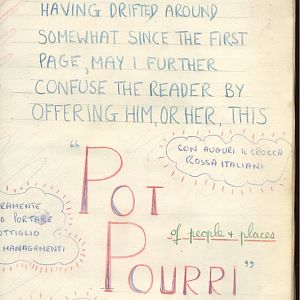 HAVING DRIFTED AROUND
SOMEWHAT SINCE THE FIRST
PAGE, MAY I FURTHER
CONFUSE THE READER BY
OFFERING HIM, OR HER, THIS
"POT
CON AUGURI IL CROCCA
ROSSA ITALIANI
RAMENTE
O PORTARE
OTTIGLIO
MANAGAMENTI
of people + places
POURRI"